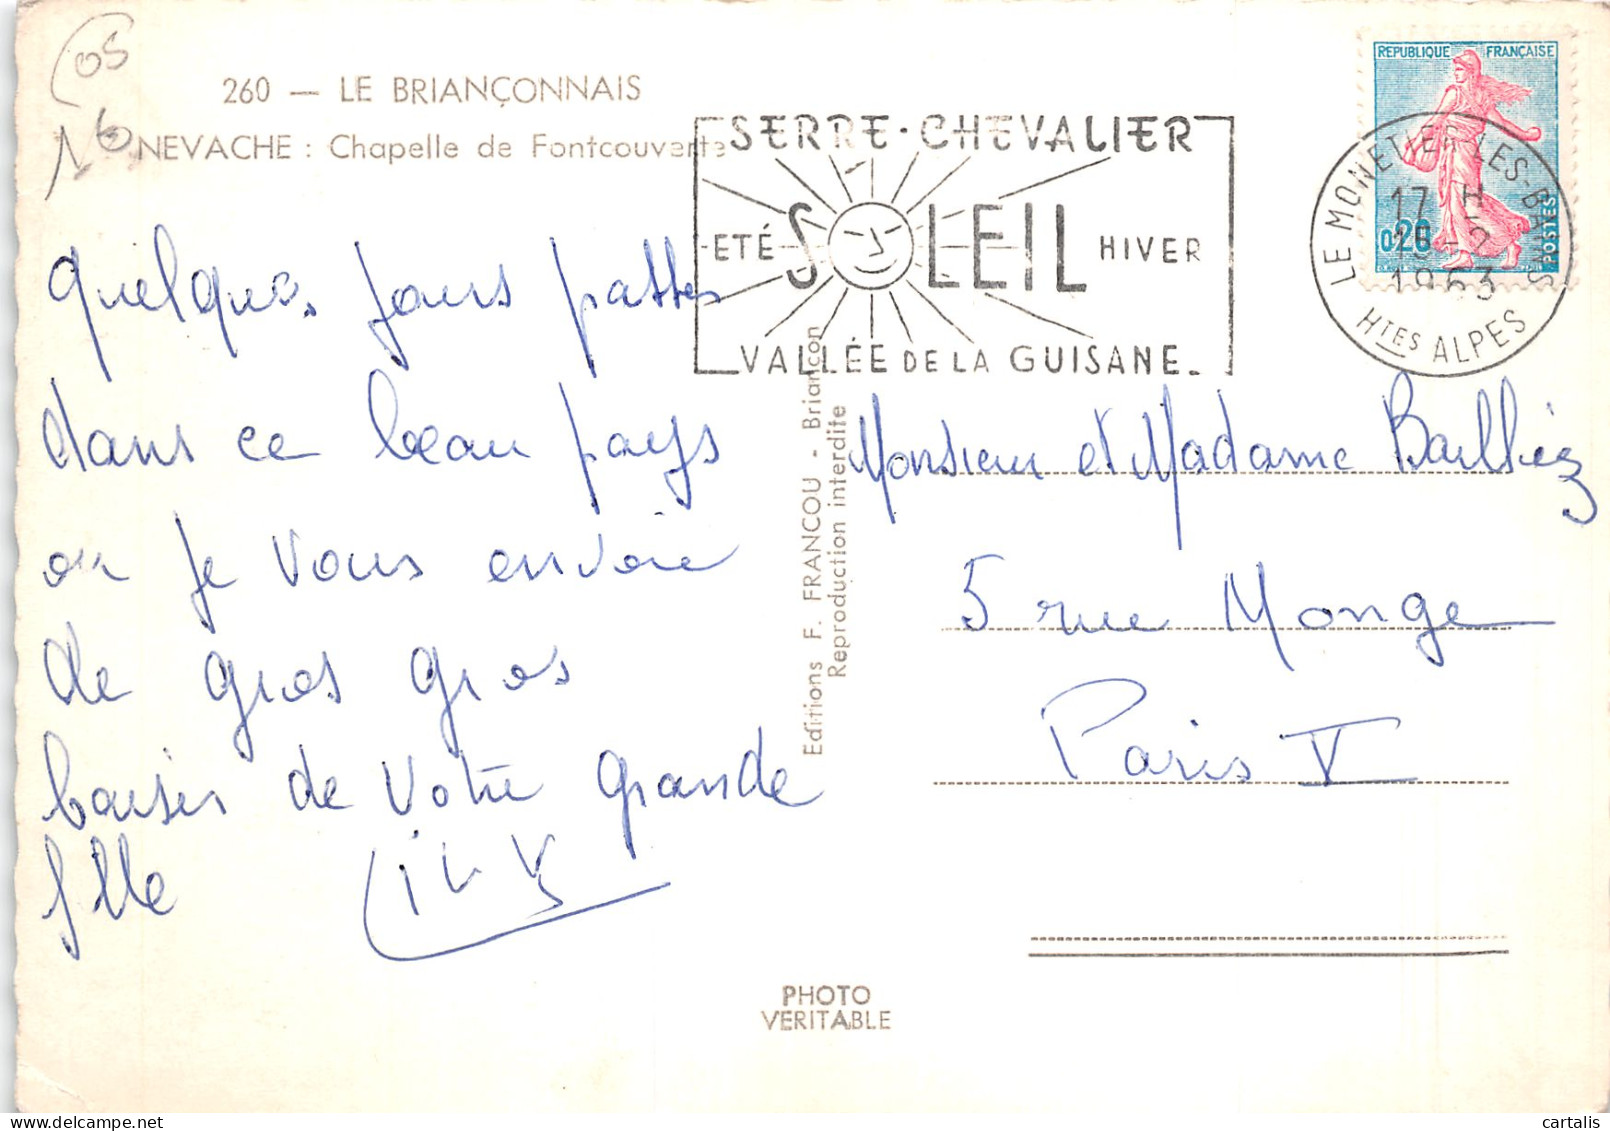 05
260 — LE BRIANÇONNAIS
NEVACHE : Chapelle de Fontcouverte
SERRE-CHEVALIER
ETÉ SOLEIL HIVER
VALLÉE DE LA GUISANE
REPUBLIQUE FRANÇAISE
0,20
POSTES
LE MONETIER-LES-BAINS
17 H
1963
HTES ALPES
quelques jours passés
dans ce beau pays
ou je vous envoie
de gros gros
baiser de votre grande
fille
Editions F. FRANCOU - Briançon
Reproduction interdite
Monsieur et Madame Bailliez
5 rue Monge
Paris V
PHOTO
VERITABLE
cartalis